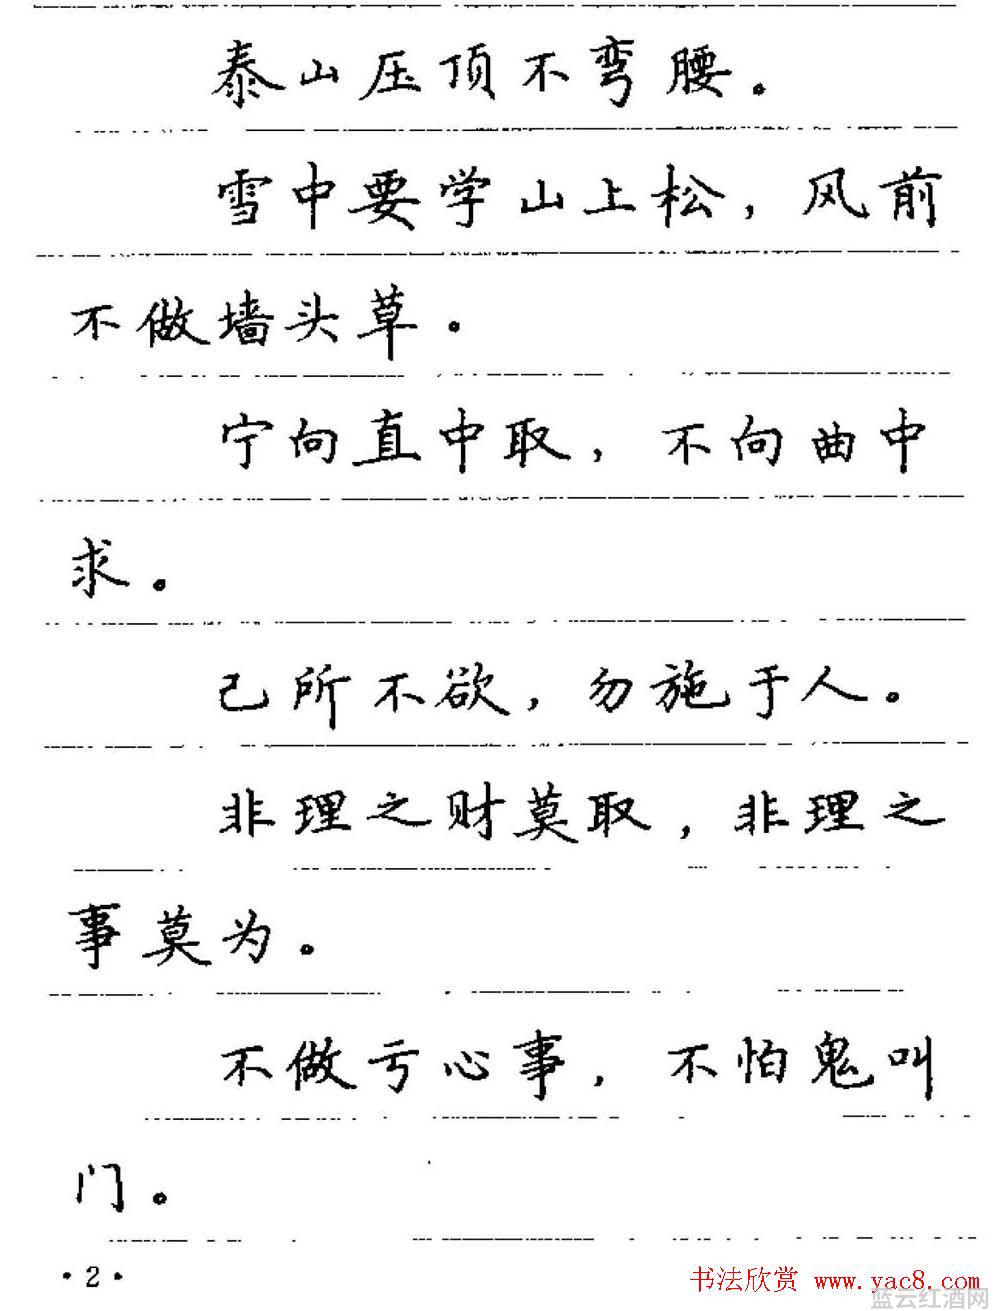 泰山压顶不弯腰。
雪中要学山上松，风前
不做墙头草。
宁向直中取，不向曲中
求。
己所不欲，勿施于人。
非理之财莫取，非理之
事莫为。
不做亏心事，不怕鬼叫
门。
·2·
书法欣赏 www.yac8.com
蓝云红酒网